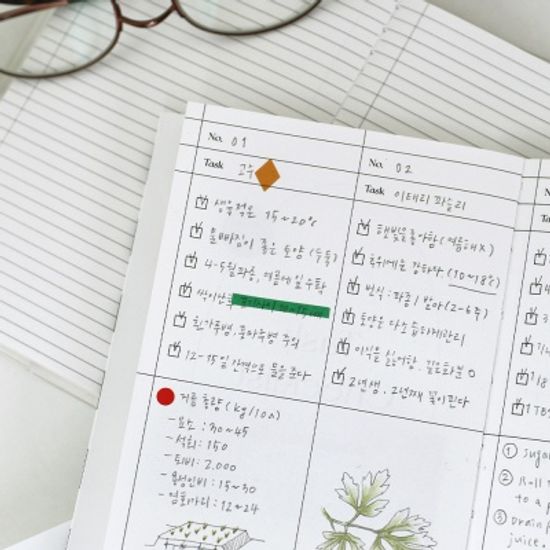 No. 01
Task 고수
생육적온 15~20°C
물빠짐이 좋은 토양
4-5월 파종, 여름에 일수확
흰가루병, 주의
12-15일 간격으로 물을 준다
거름 총량 (kg/10a)
- 요소 : 30~45
- 석회 : 150
- 퇴비 : 2.000
- 용성인비 : 15~30
- 염화가리 : 12~24
No. 02
Task 이태리 파슬리
햇빛을 좋아함 (여름해 X)
추위에도 강하다 (10~18°C)
번식 : 파종 / 발아 (2-6주)
토양은 다소 습하게 관리
이식을 싫어함. 깊은화분 O
2년생. 2년째 꽃이핀다
N
T
1 TBS
① Sugar
② Roll
to a p
③ Drain
juice.